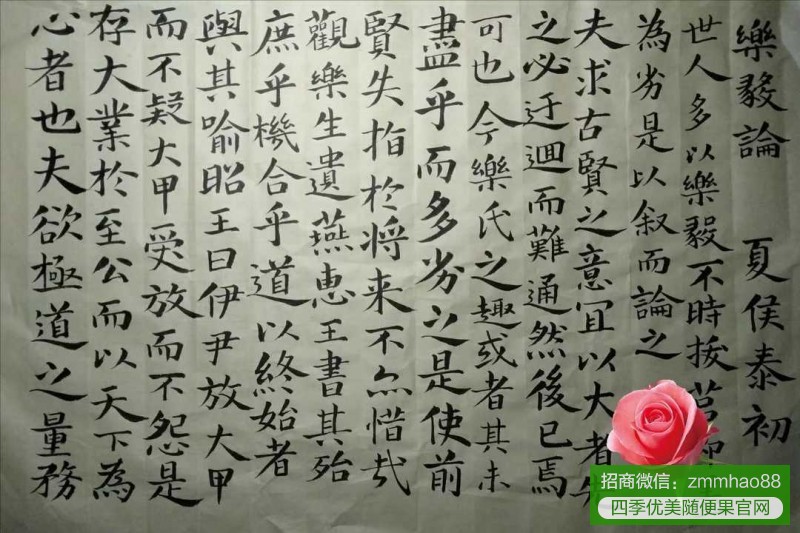 樂毅論 夏侯泰初
世人多以樂毅不時拔莒
為劣是以叙而論之
夫求古賢之意宜以大者先
之必迂迴而難通然後已焉
可也今樂氏之趣或者其未
盡乎而多劣之是使前
賢失指於将来不亦惜哉
觀樂生遺燕惠王書其殆
庶乎機合乎道以終始者
與其喻昭王曰伊尹放大甲
而不疑大甲受放而不怨是
存大業於至公而以天下為
心者也夫欲極道之量務
招商微信：zmmhao88
四季优美随便果官网